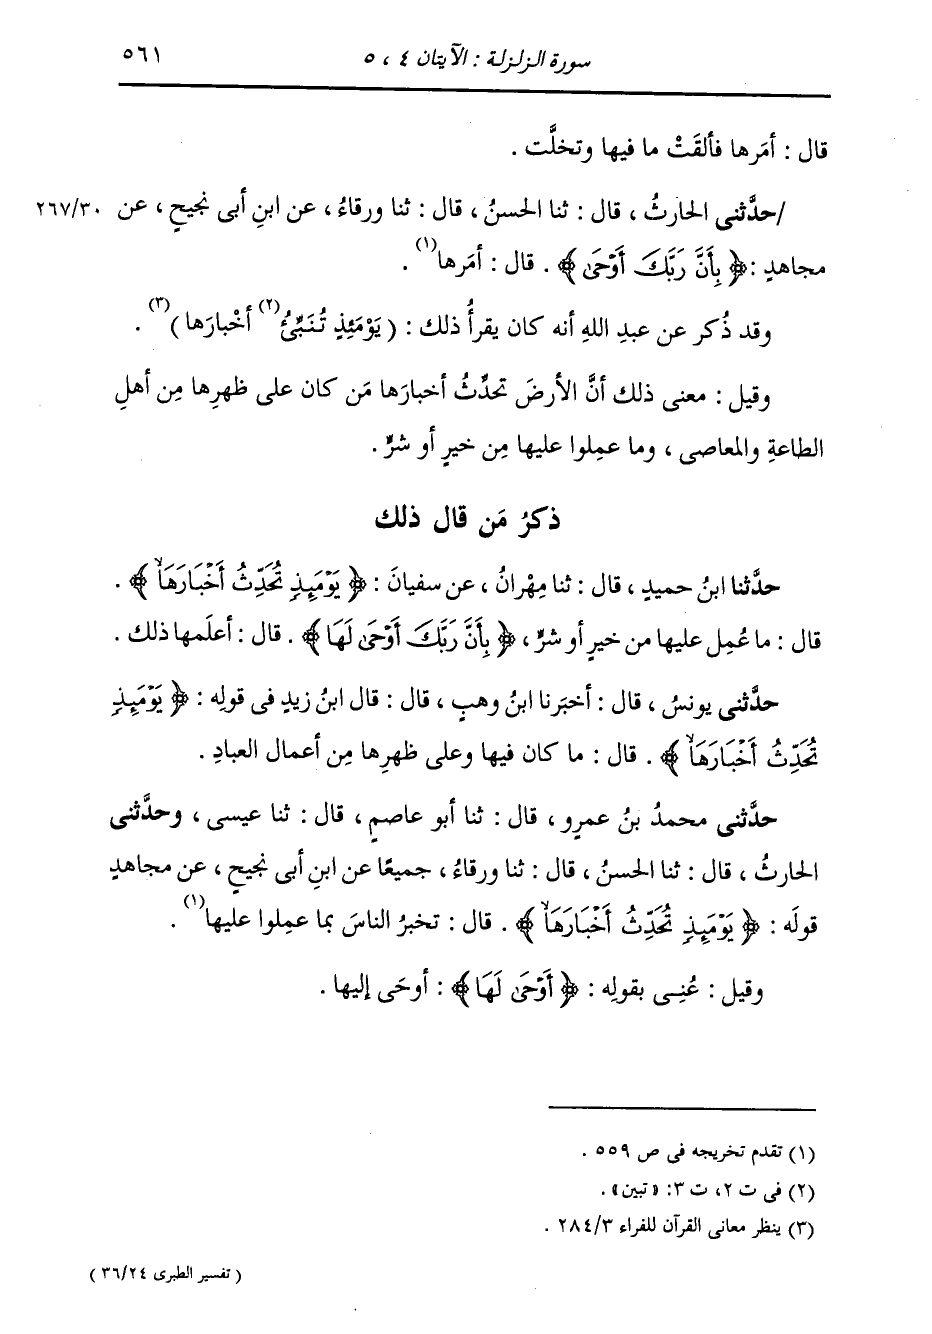 سورة الزلزلة : الآيتان ٤ ، ٥ ٥٦١
قال : أمَرها فألقَتْ ما فيها وتخلَّت .
/حدَّثنى الحارثُ ، قال : ثنا الحسنُ ، قال : ثنا ورقاءُ ، عن ابنِ أبى نجيحٍ ، عن ٢٦٧/٣٠
مجاهدٍ : ﴿ بِأَنَّ رَبَّكَ أَوْحَىٰ ﴾ . قال : أمَرها(١) .
وقد ذُكر عن عبدِ اللهِ أنه كان يقرأُ ذلك : ( يَوْمَئِذٍ تُنَبِّئُ(٢) أخْبارَها )(٣) .
وقيل : معنى ذلك أنَّ الأرضَ تحدِّثُ أخبارَها مَن كان على ظهرِها مِن أهلِ
الطاعةِ والمعاصى ، وما عمِلوا عليها مِن خيرٍ أو شرٍّ .
ذكرُ مَن قال ذلك
حدَّثنا ابنُ حميدٍ ، قال : ثنا مِهْرانُ ، عن سفيانَ : ﴿ يَوْمَئِذٍ تُحَدِّثُ أَخْبَارَهَا ﴾ .
قال : ما عُمِل عليها من خيرٍ أو شرٍّ ، ﴿ بِأَنَّ رَبَّكَ أَوْحَىٰ لَهَا ﴾ . قال : أعلَمها ذلك .
حدَّثنى يونسُ ، قال : أخبَرنا ابنُ وهبٍ ، قال : قال ابنُ زيدٍ فى قولِه : ﴿ يَوْمَئِذٍ
تُحَدِّثُ أَخْبَارَهَا ﴾ . قال : ما كان فيها وعلى ظهرِها مِن أعمال العبادِ .
حدَّثنى محمدُ بنُ عمرٍو ، قال : ثنا أبو عاصمٍ ، قال : ثنا عيسى ، وحدَّثنى
الحارثُ ، قال : ثنا الحسنُ ، قال : ثنا ورقاءُ ، جميعًا عن ابنِ أبى نجيحٍ ، عن مجاهدٍ
قولَه : ﴿ يَوْمَئِذٍ تُحَدِّثُ أَخْبَارَهَا ﴾ . قال : تخبرُ الناسَ بما عمِلوا عليها(١) .
وقيل : عُنِى بقولِه : ﴿ أَوْحَىٰ لَهَا ﴾ : أوحَى إليها .
(١) تقدم تخريجه فى ص ٥٥٩ .
(٢) فى ت ٢، ت ٣: « تبين » .
(٣) ينظر معانى القرآن للفراء ٢٨٤/٣ .
( تفسير الطبرى ٣٦/٢٤ )